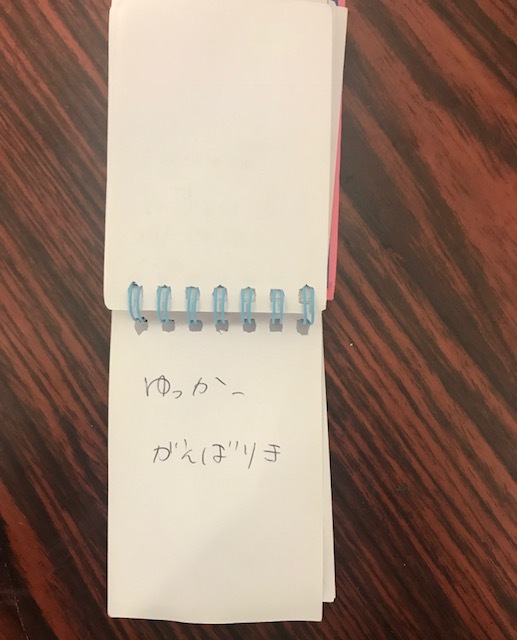 ゆっか、
がんばりま